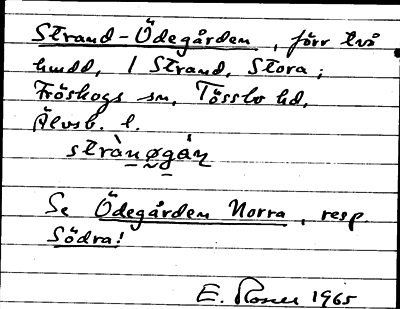 Strand-Ödegården, förr två
hmdd, / Strand, Stora;
Fröskogs sn, Tössbo hd,
Älvsb. l.
strànøgán
Se Ödegården Norra, resp.
Södra!
E. Rosen 1965